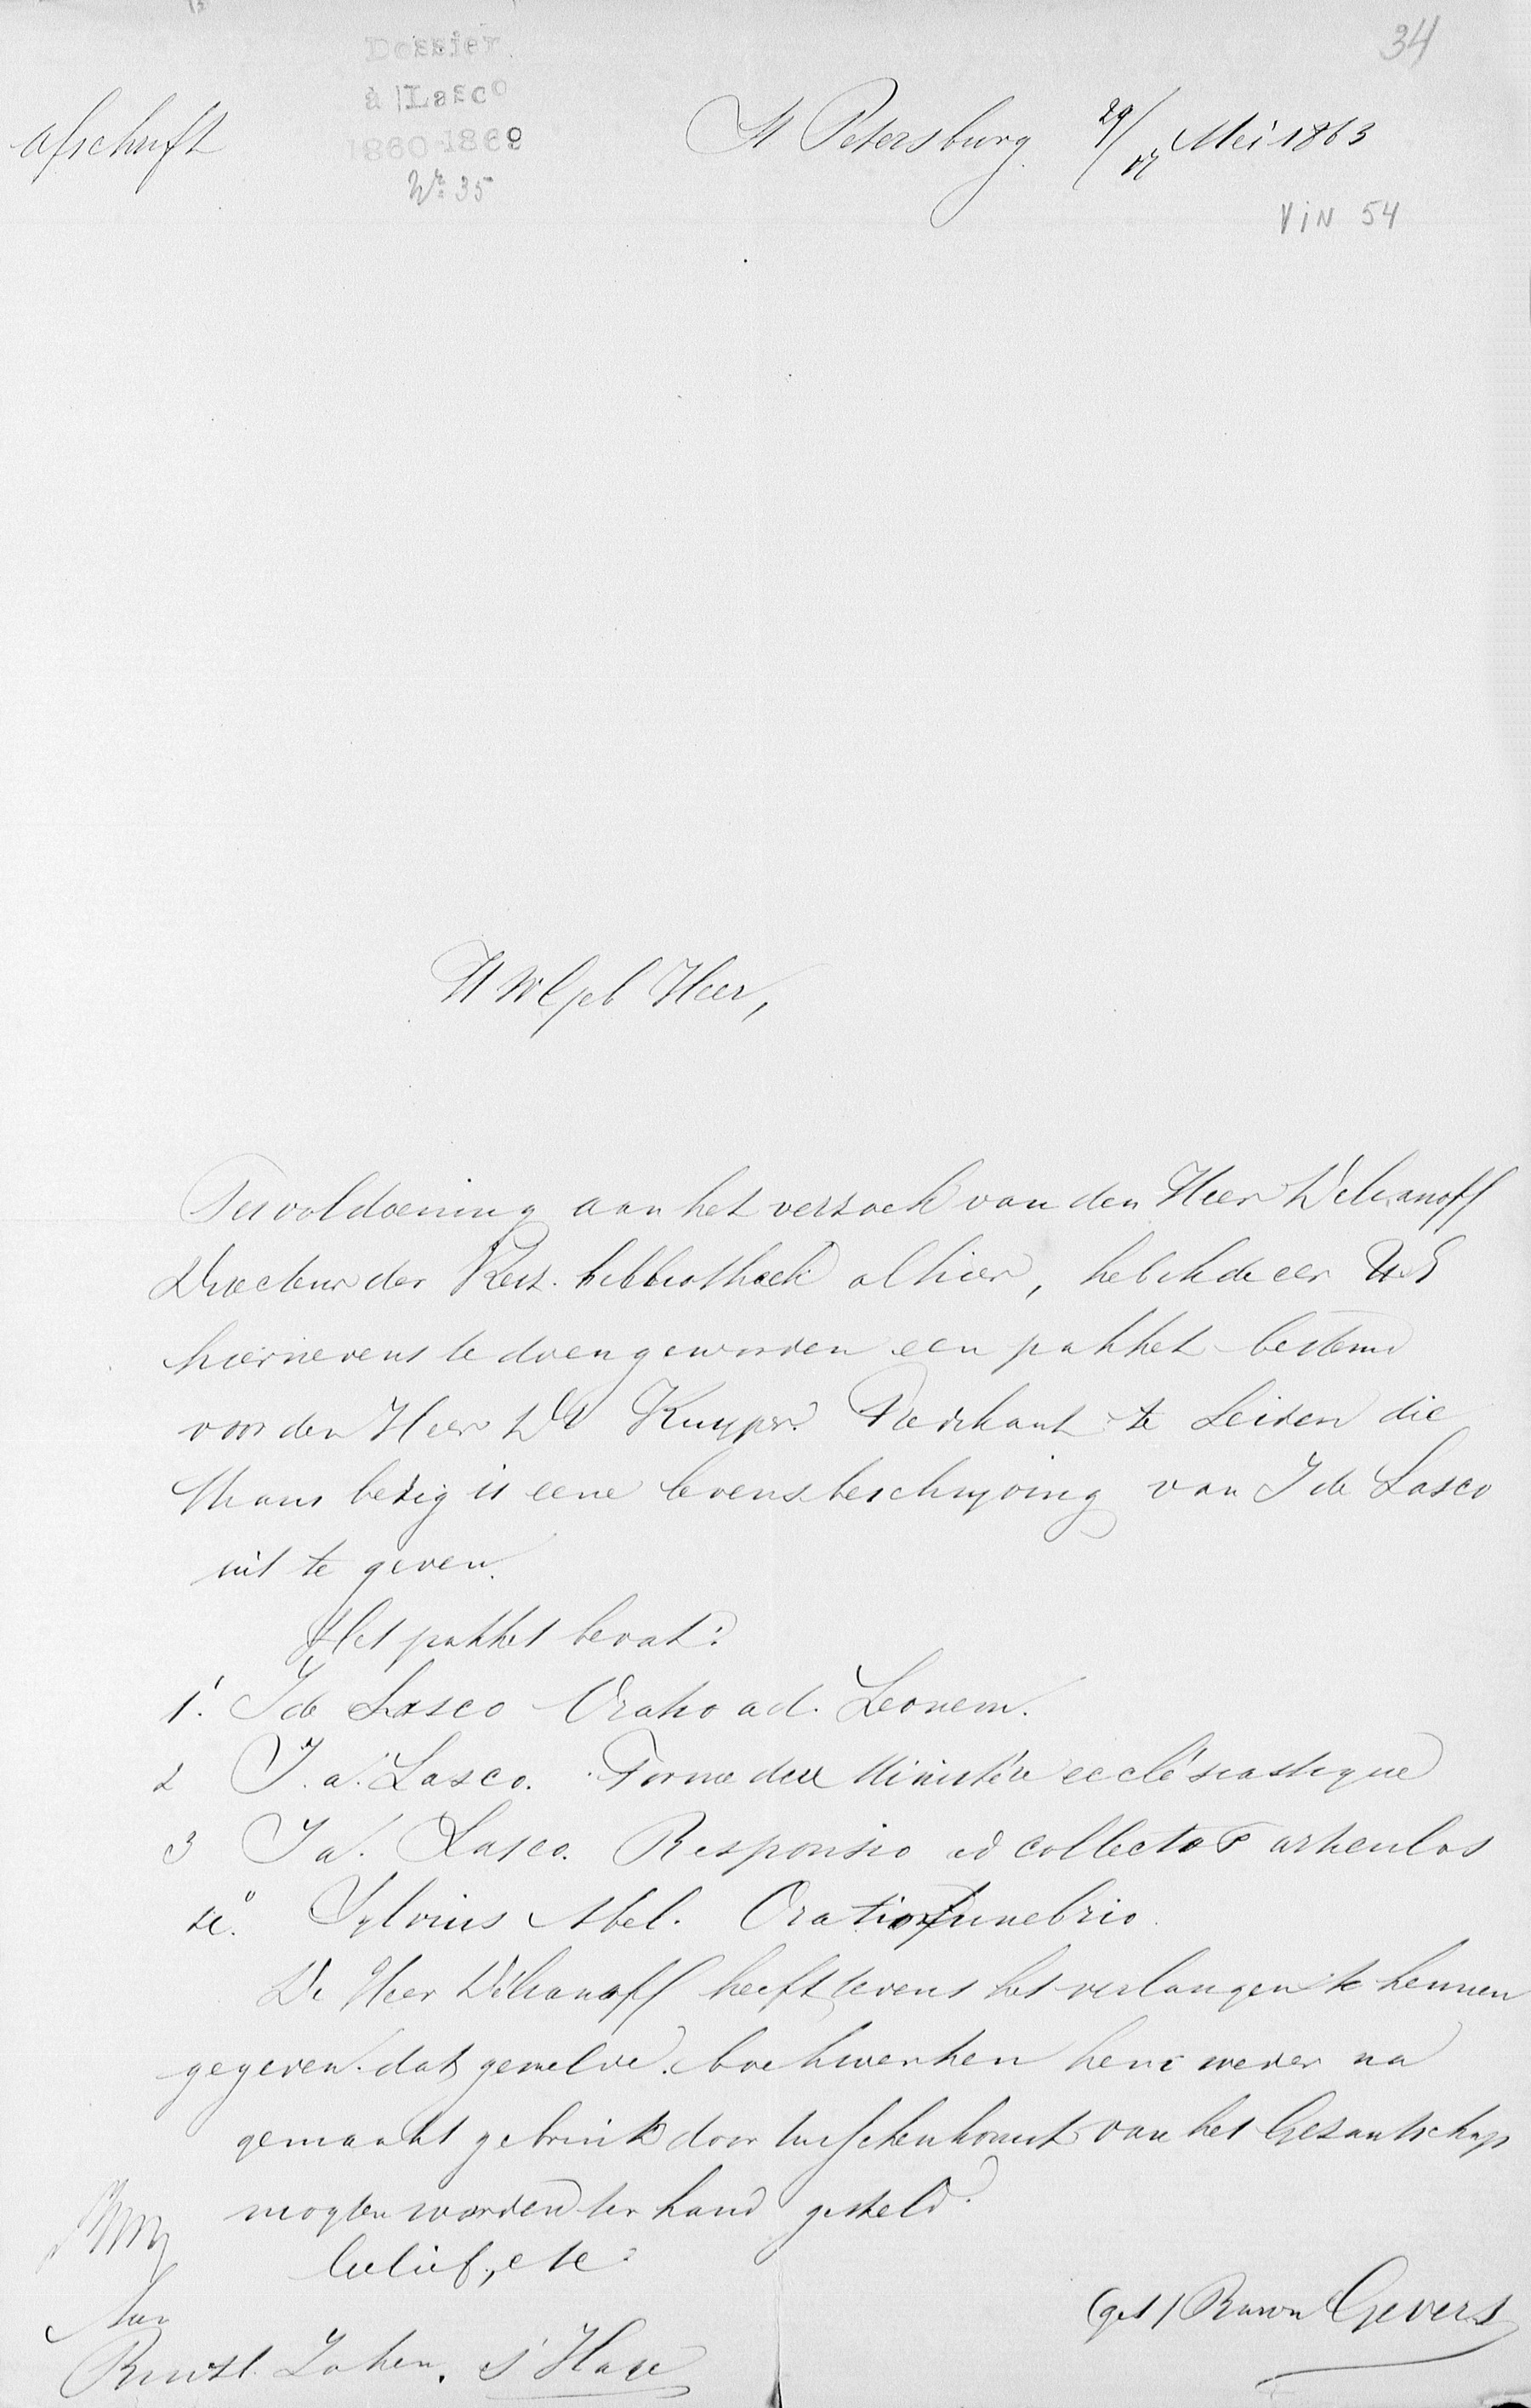 34
Dossier
à Lasco
1860-1869
No 35
Afschrift
St Petersburg 29/17 Mei 1863
VIN 54
WelGeb Heer,
Ter voldoening aan het verzoek van den Heer Delianoff
Directeur der Keiz. bibliotheek alhier, heb ik de eer UE
hiernevens te doen geworden een pakket bestemd
voor den Heer Dr Kuyper. Predikant te Leiden die
thans bezig is eene levensbeschrijving van J de Lasco
uit te geven.
Het pakket bevat:
1. J de Lasco Oratio ad. Leonem.
2 J. a. Lasco. Forme du Ministère ecclésiastique
3 J a. Lasco. Responsio ad collectos articulos
4o. Sylvius Abel. Oratio funebris.
De Heer Delianoff heeft tevens het verlangen te kennen
gegeven dat gemelde boekwerken hem weder na
gemaakt gebruik door tusschenkomst van het Gezantschap
mogten worden ter hand gesteld.
Gelief, etc
(get) Baron Gevers
Aan
Buitl. Zaken. s' Hage